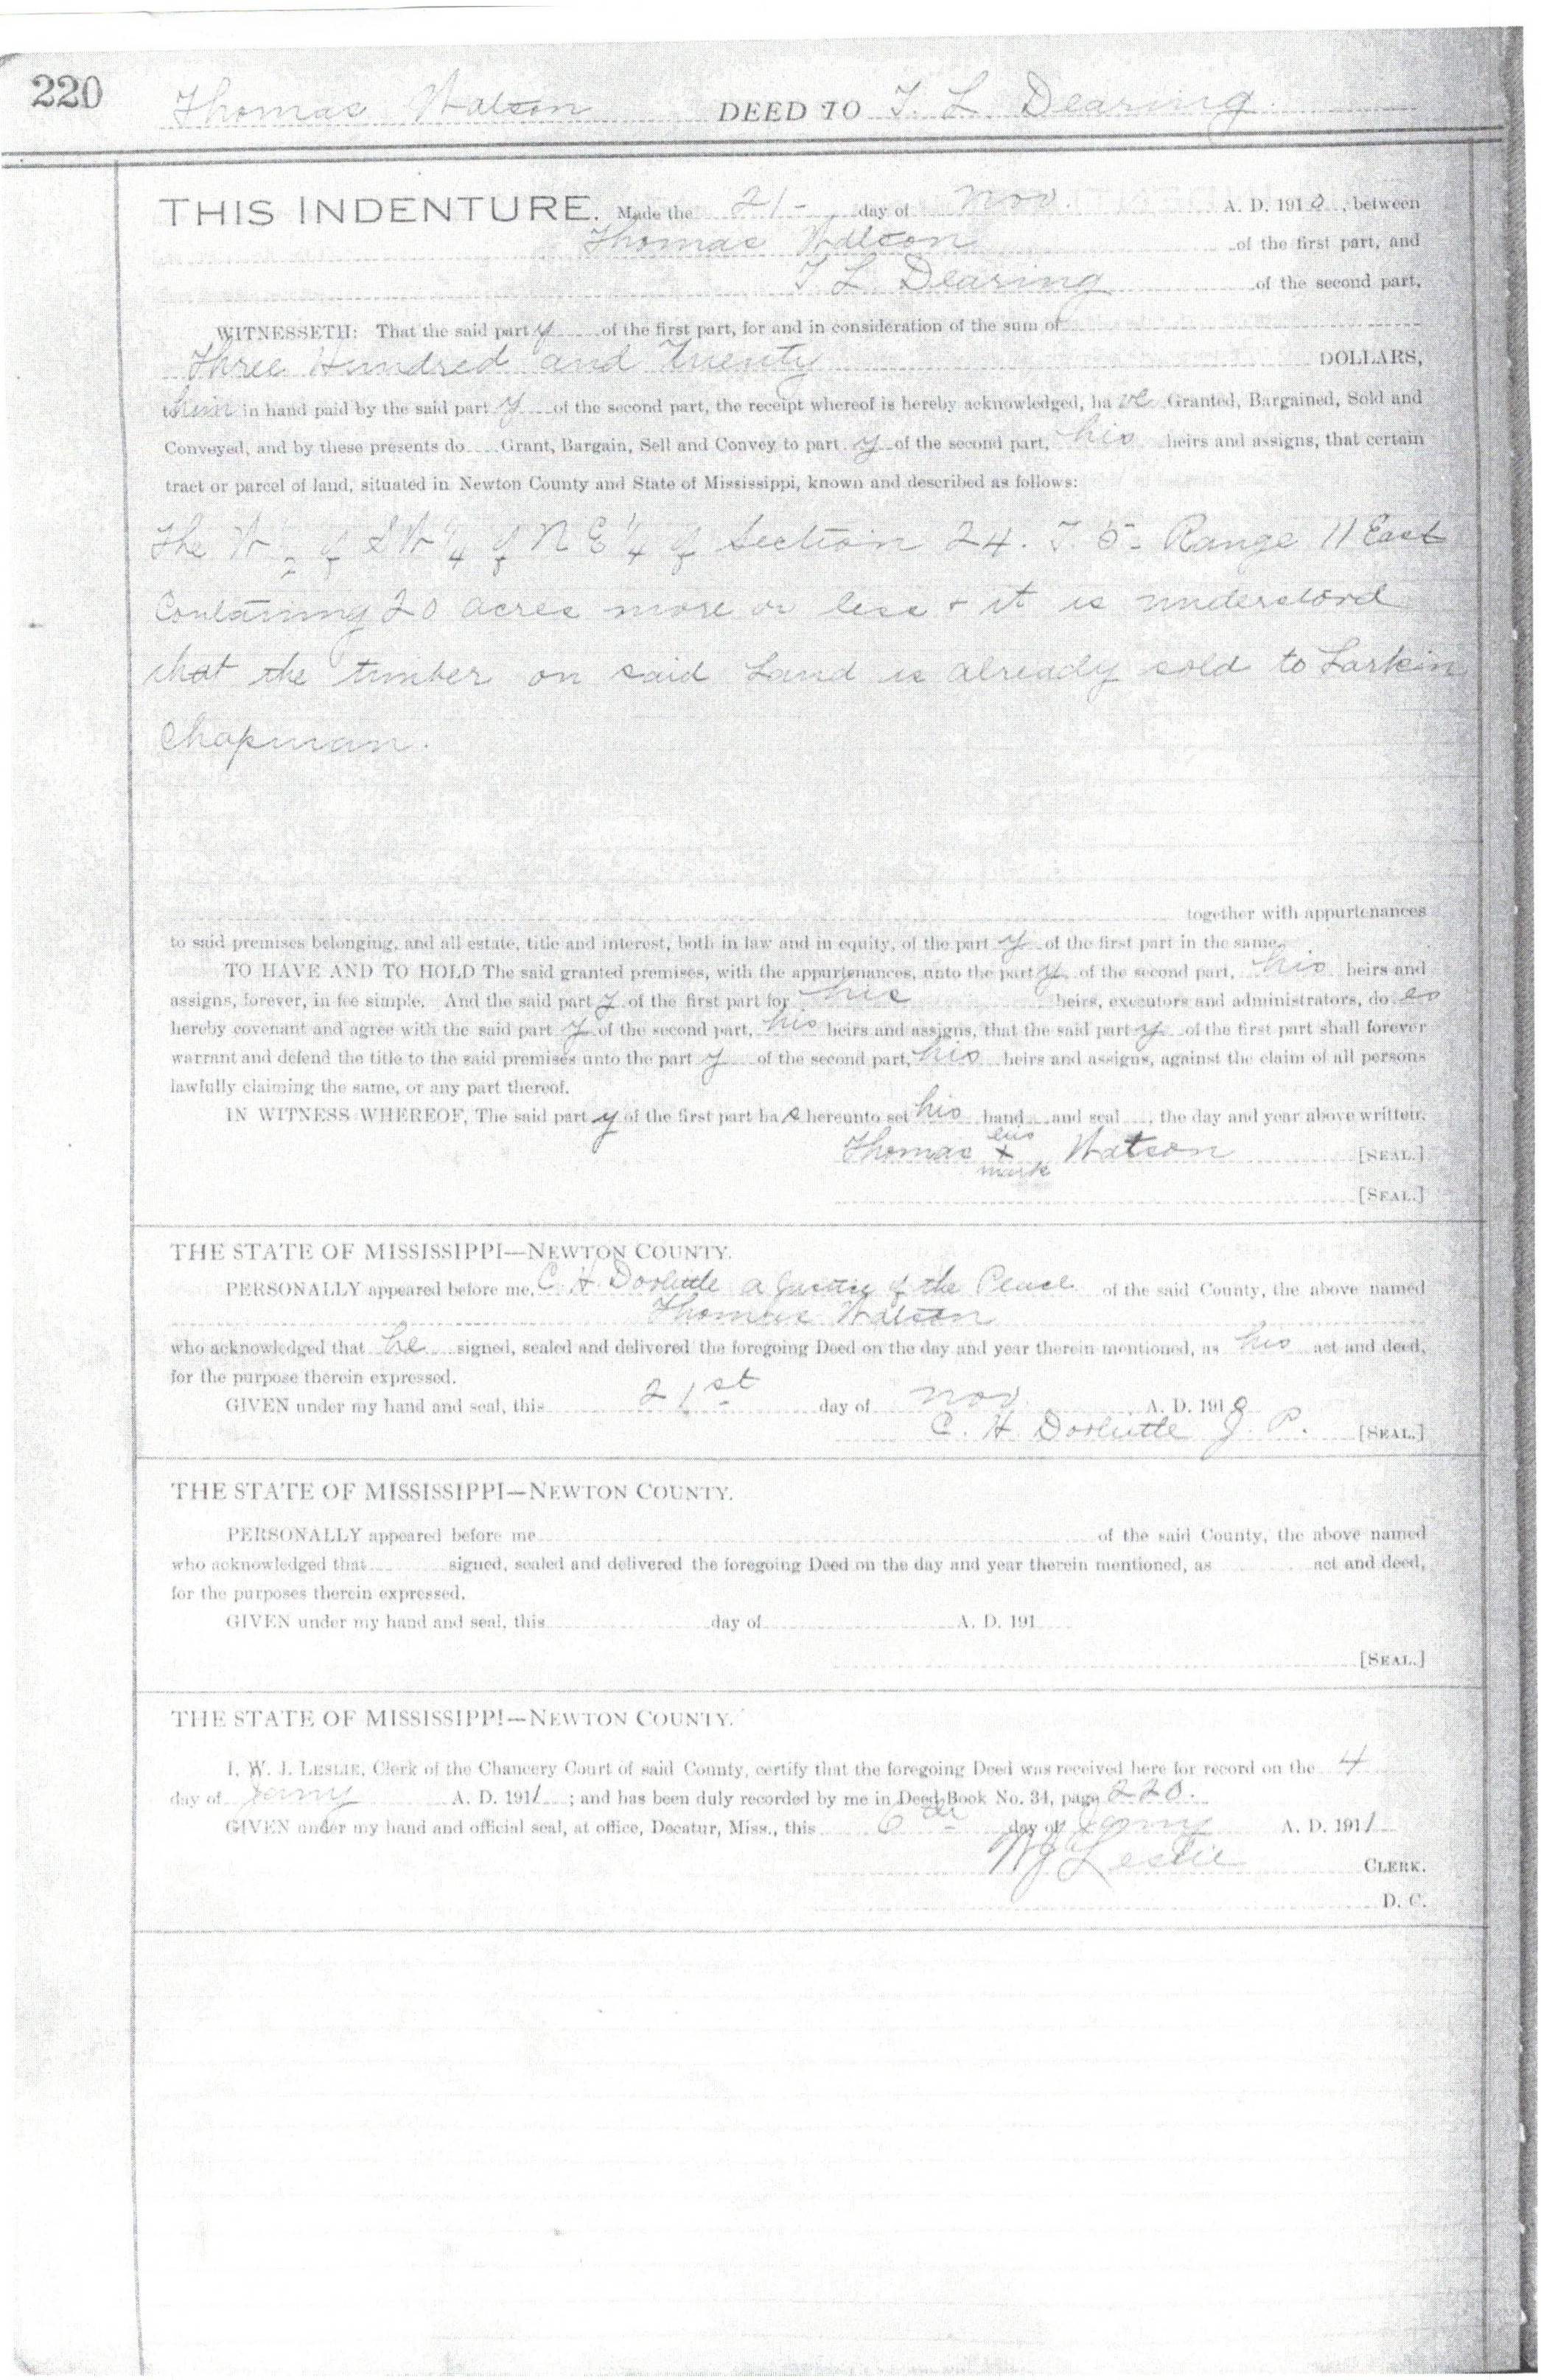 220
Thomas Watson DEED TO T. L. Dearing
THIS INDENTURE. Made the 21- day of Nov. A. D. 1910, between
Thomas Watson of the first part, and
T L Dearing of the second part,
WITNESSETH: That the said party of the first part, for and in consideration of the sum of
Three Hundred and Twenty DOLLARS,
to him in hand paid by the said party of the second part, the receipt whereof is hereby acknowledged, have Granted, Bargained, Sold and
Conveyed, and by these presents do Grant, Bargain, Sell and Convey to party of the second part, his heirs and assigns, that certain
tract or parcel of land, situated in Newton County and State of Mississippi, known and described as follows:
The W ½ of SW ¼ of N E ¼ of Section 24. T 5- Range 11 East
Containing 20 acres more or less & it is understord
that the timber on said Land is already sold to Larkin
Chapman.
together with appurtenances
to said premises belonging, and all estate, title and interest, both in law and in equity, of the party of the first part in the same.
TO HAVE AND TO HOLD The said granted premises, with the appurtenances, unto the party of the second part, his heirs and
assigns, forever, in fee simple. And the said party of the first part for his heirs, executors and administrators, does
hereby covenant and agree with the said party of the second part, his heirs and assigns, that the said party of the first part shall forever
warrant and defend the title to the said premises unto the party of the second part, his heirs and assigns, against the claim of all persons
lawfully claiming the same, or any part thereof.
IN WITNESS WHEREOF, The said party of the first part has hereunto set his hand and seal, the day and year above written.
his
Thomas x Watson [SEAL.]
mark
[SEAL.]
THE STATE OF MISSISSIPPI—NEWTON COUNTY.
PERSONALLY appeared before me, C. H. Doolittle a Justice of the Peace of the said County, the above named
Thomas Watson
who acknowledged that he signed, sealed and delivered the foregoing Deed on the day and year therein mentioned, as his act and deed,
for the purpose therein expressed.
GIVEN under my hand and seal, this 21st day of Nov. A. D. 1910
C. H. Doolittle J. P. [SEAL.]
THE STATE OF MISSISSIPPI—NEWTON COUNTY.
PERSONALLY appeared before me of the said County, the above named
who acknowledged that signed, sealed and delivered the foregoing Deed on the day and year therein mentioned, as act and deed,
for the purposes therein expressed.
GIVEN under my hand and seal, this day of A. D. 191
[SEAL.]
THE STATE OF MISSISSIPPI—NEWTON COUNTY.
I, W. J. LESLIE, Clerk of the Chancery Court of said County, certify that the foregoing Deed was received here for record on the 4
day of Jany A. D. 1911; and has been duly recorded by me in Deed Book No. 34, page 220.
GIVEN under my hand and official seal, at office, Decatur, Miss., this 6th day of Jany A. D. 1911
WJ Leslie CLERK.
D. C.